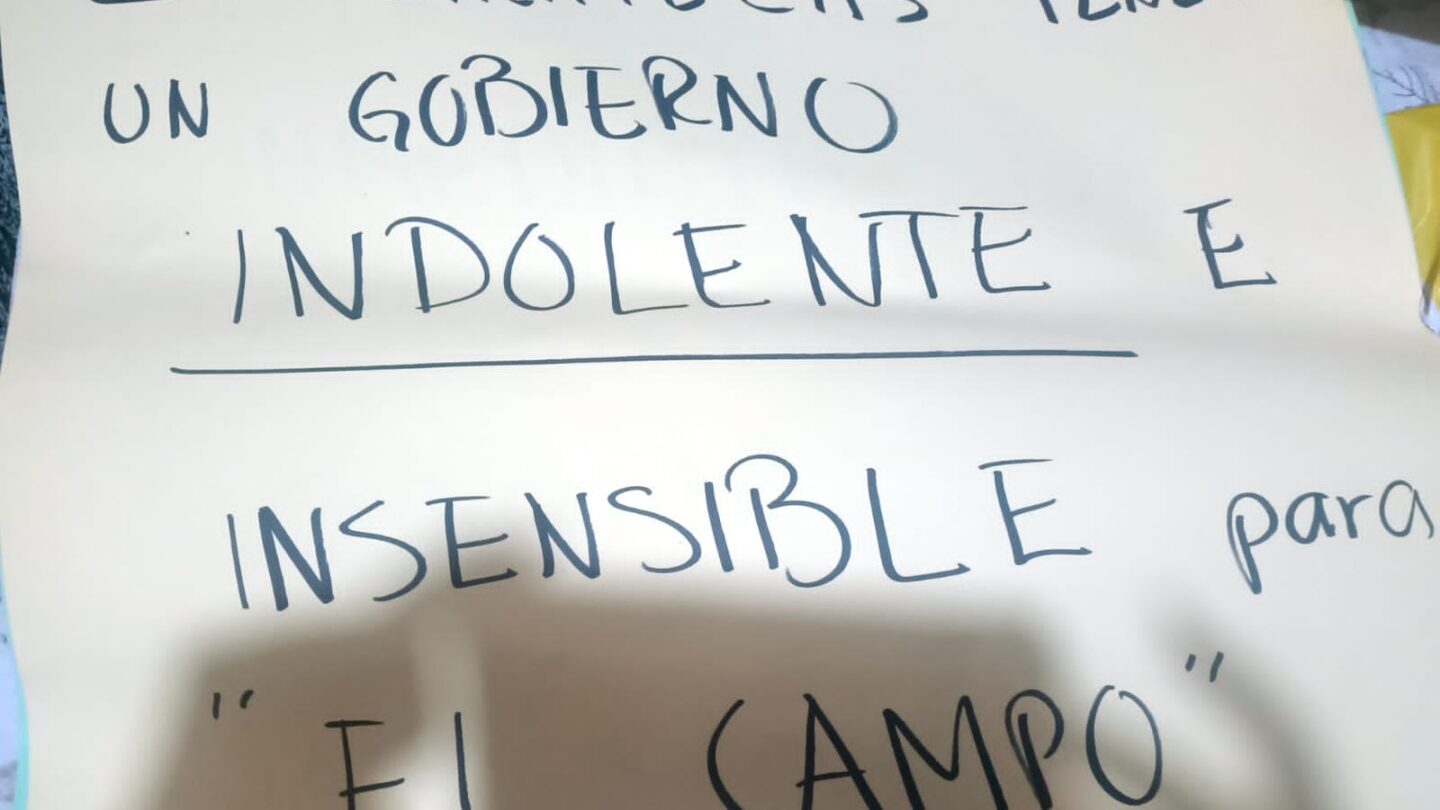 UN GOBIERNO
INDOLENTE E
INSENSIBLE para
"EL CAMPO"